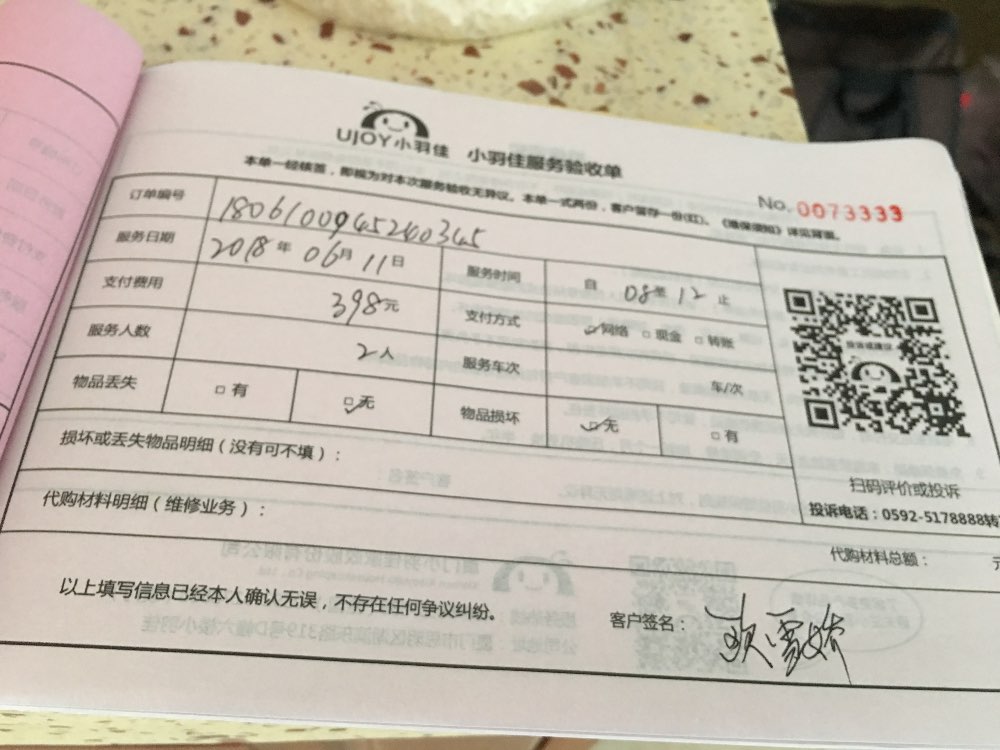 UJOY小羽佳 小羽佳服务验收单
本单一经核签，即视为对本次服务验收无异议。本单一式两份，客户留存一份(红)。《维保须知》详见背面。
No. 0073333
订单编号 180610094524034​5
服务日期 2018年 06月 11日 服务时间 自 08至 12止
支付费用 398元 支付方式 网络 现金 转账
服务人数 2人 服务车次 车/次
物品丢失 有 无 物品损坏 无 有
损坏或丢失物品明细（没有可不填）：
扫码评价或投诉
投诉电话：0592-5178888转
代购材料明细（维修业务）：
代购材料总额： 元
以上填写信息已经本人确认无误，不存在任何争议纠纷。
客户签名： 欧雪娇